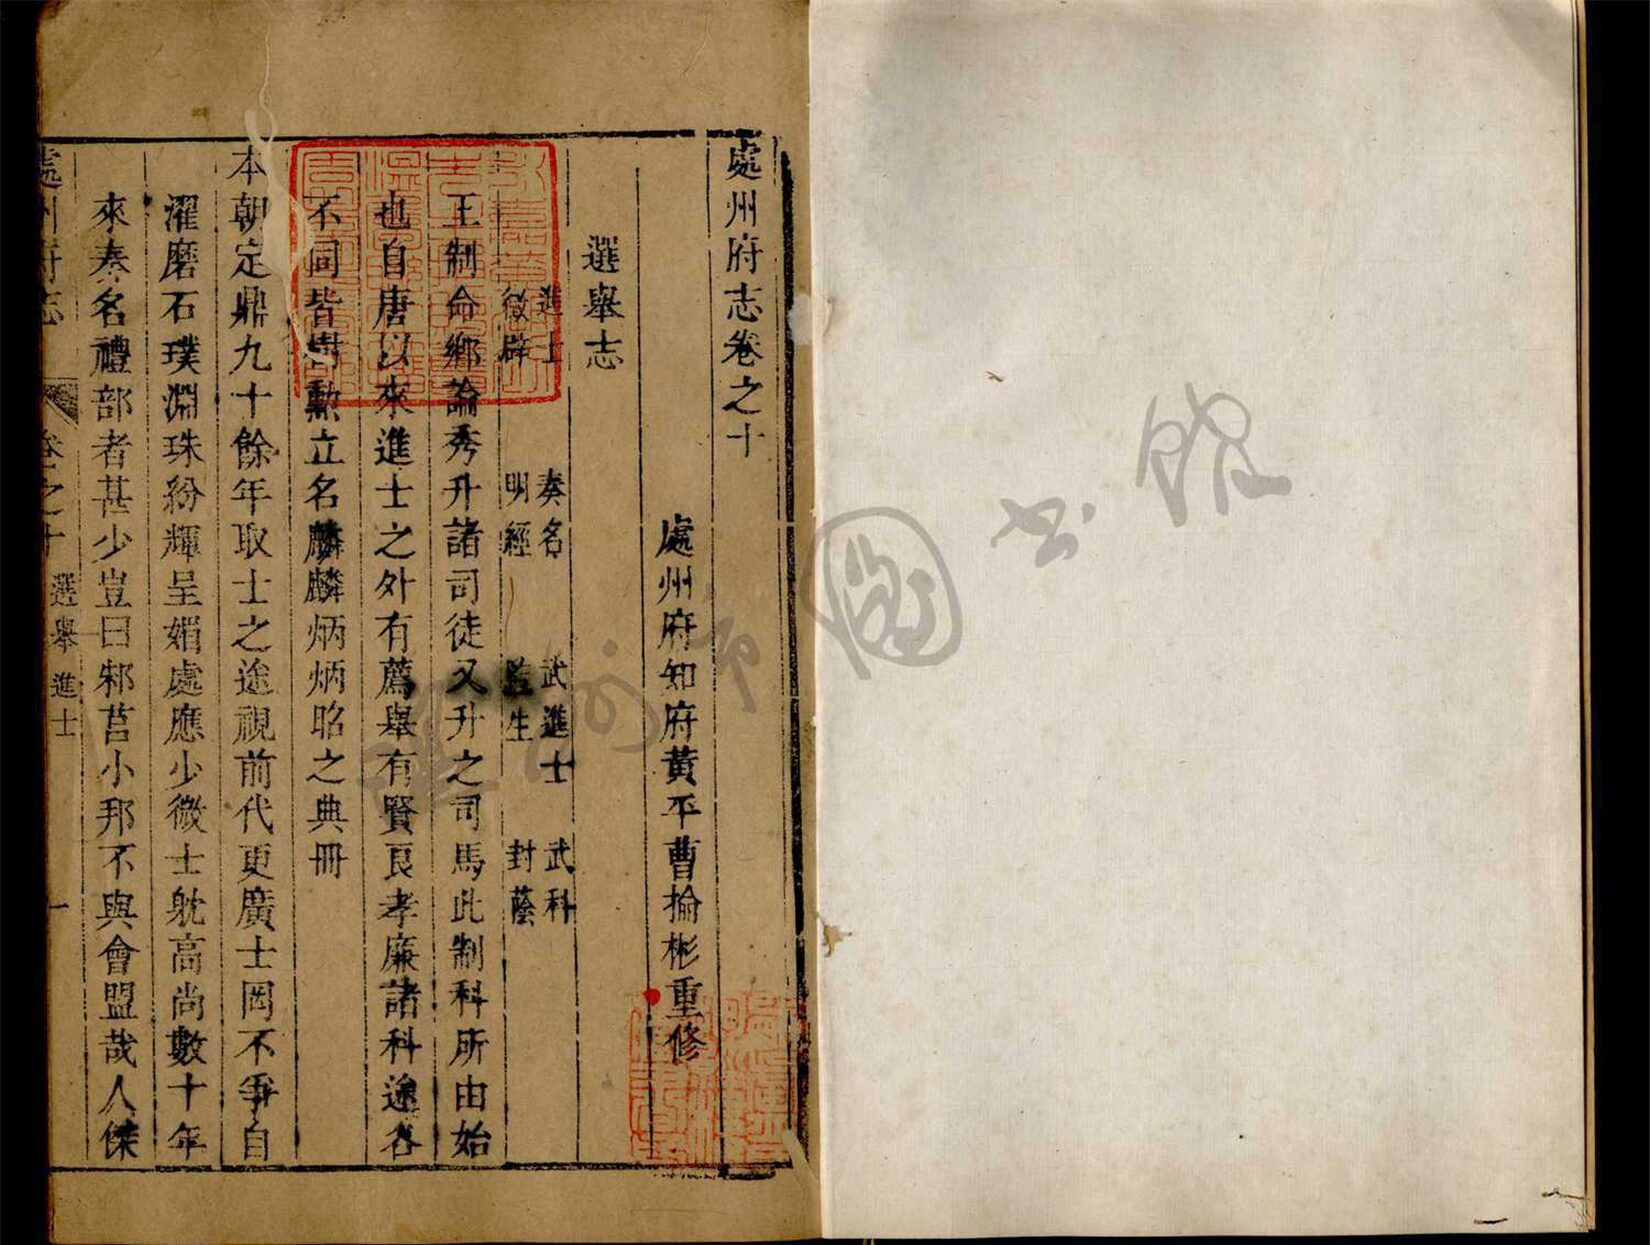 處州府志卷之十
處州府知府黃平曹掄彬重修
選舉志
進士 奏名 武進士 武科
徵辟 明經 監生 封蔭
王制命鄉論秀升諸司徒又升之司馬此制科所由始
也自唐以來進士之外有薦舉有賢良孝廉諸科途各
不同皆樹勳立名麟麟炳炳昭之典冊
本朝定鼎九十餘年取士之途視前代更廣士罔不爭自
濯磨石璞淵珠紛輝呈媚處應少微士躭高尚數十年
來奏名禮部者甚少豈曰邾莒小邦不與會盟哉人傑
處州府志 卷之十 選舉 進士 一
圖書館